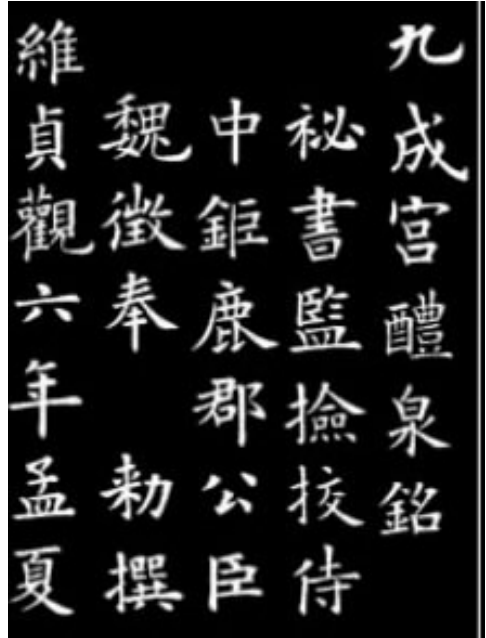 九成宫醴泉銘
祕書監撿挍侍
中鉅鹿郡公臣
魏徵奉 勑撰
維貞觀六年孟夏